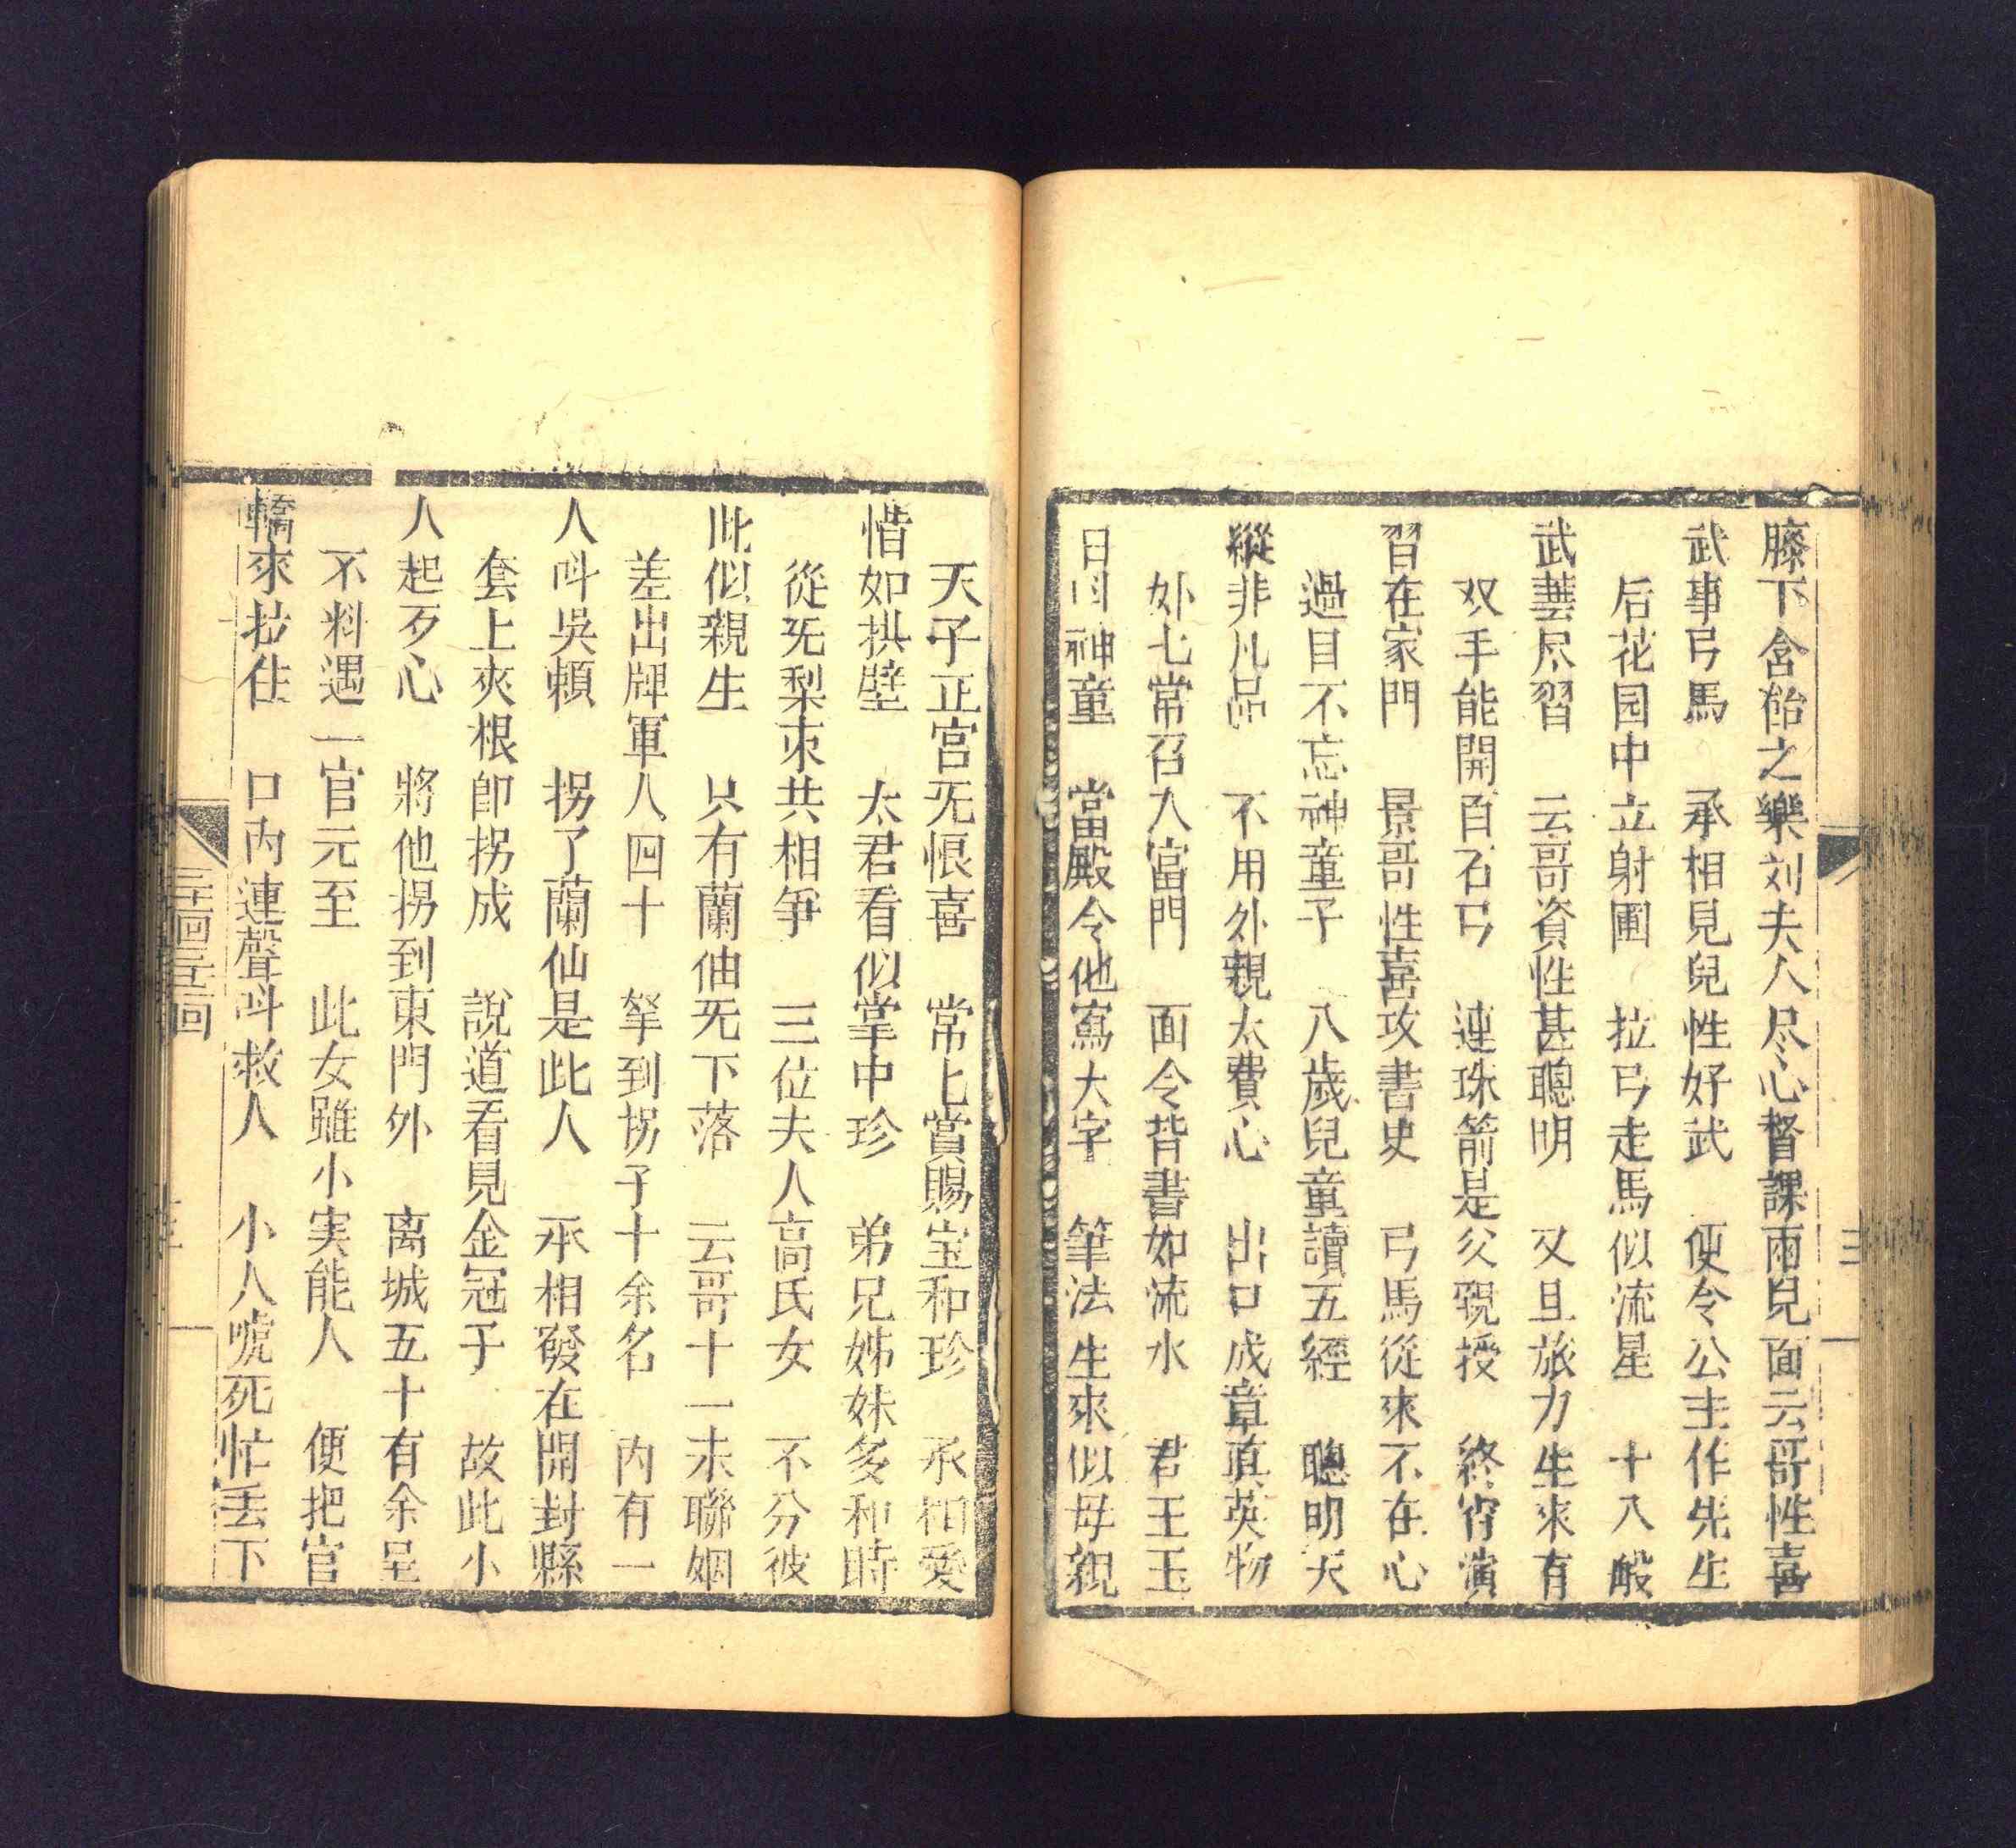 膝下含飴之樂刘夫人尽心督課兩兒面云哥性喜
武事弓馬　承相見兒性好武　便令公主作先生
后花园中立射圃　拉弓走馬似流星　十八般
武藝尽習　云哥資性甚聰明　又且旅力生來有
双手能開百石弓　連珠箭是父親授　終宵演
習在家門　景哥性喜攻書史　弓馬從來不在心
過目不忘神童子　八歲兒童讀五經　聰明天
縱非凡品　不用外親太費心　出口成章真英物
外七常召入宮門　面令背書如流水　君王玉
日　神童　當殿令他寫大字　筆法生來似母親
天子正宮无恨喜　常上賞賜宝和珍　承相愛
惜如拱壁　太君看似掌中珍　弟兄姊妹多和時
從无梨枣共相爭　三位夫人高氏女　不分彼
此似親生　只有蘭仙无下落　云哥十一未聯姻
差出牌軍八四十　拏到拐子十余名　內有一
人呌吳頼　拐了蘭仙是此人　承相發在開封縣
套上夾根卽拐成　說道看見金冠子　故此小
人起歹心　將他拐到東門外　离城五十有余呈
不料遇一官元至　此女雖小実能人　便把官
轎來拉住　口內連聲呌救人　小人唬死忙丢下